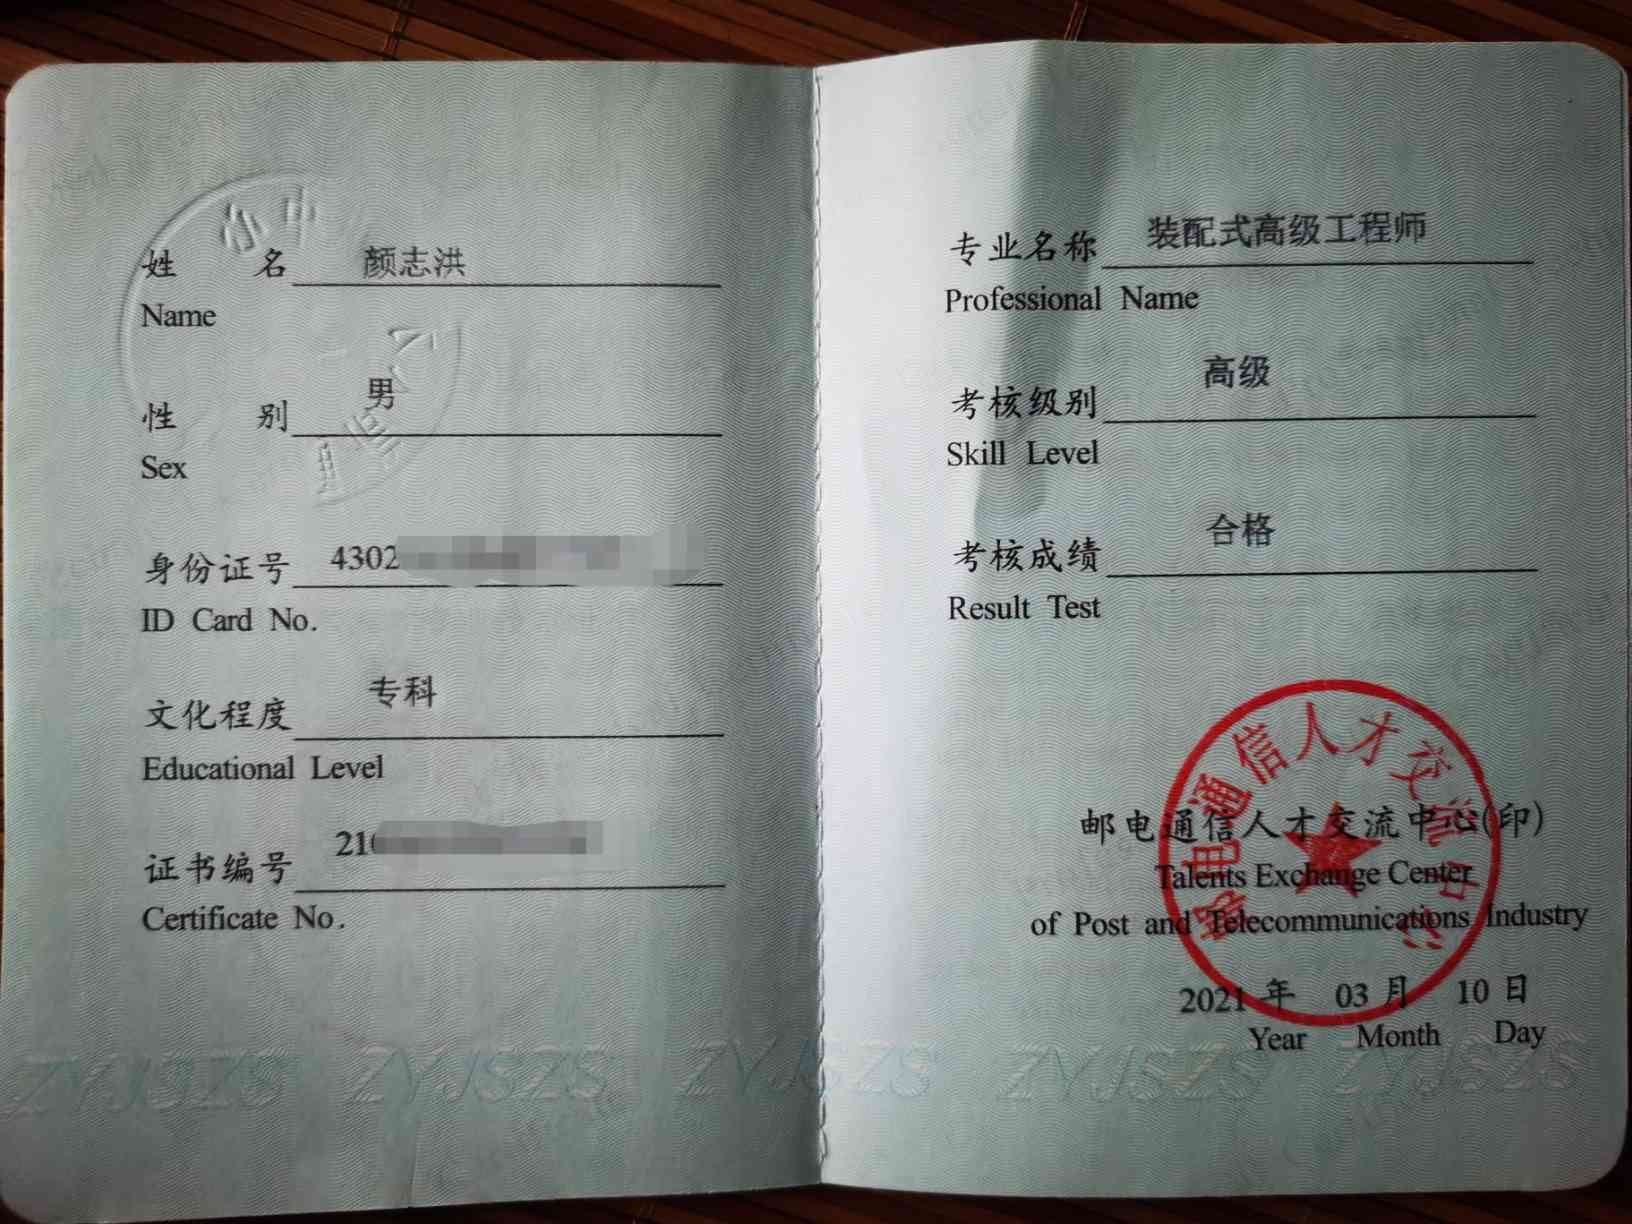 姓 名 颜志洪
Name
性 别 男
Sex
身份证号 4302
ID Card No.
文化程度 专科
Educational Level
证书编号 210
Certificate No.
专业名称 装配式高级工程师
Professional Name
考核级别 高级
Skill Level
考核成绩 合格
Result Test
邮电通信人才交流中心
邮电通信人才交流中心(印)
Talents Exchange Center
of Post and Telecommunications Industry
2021 年 03 月 10 日
Year Month Day
ZYJSZS ZYJSZS ZYJSZS ZYJSZS ZYJSZS